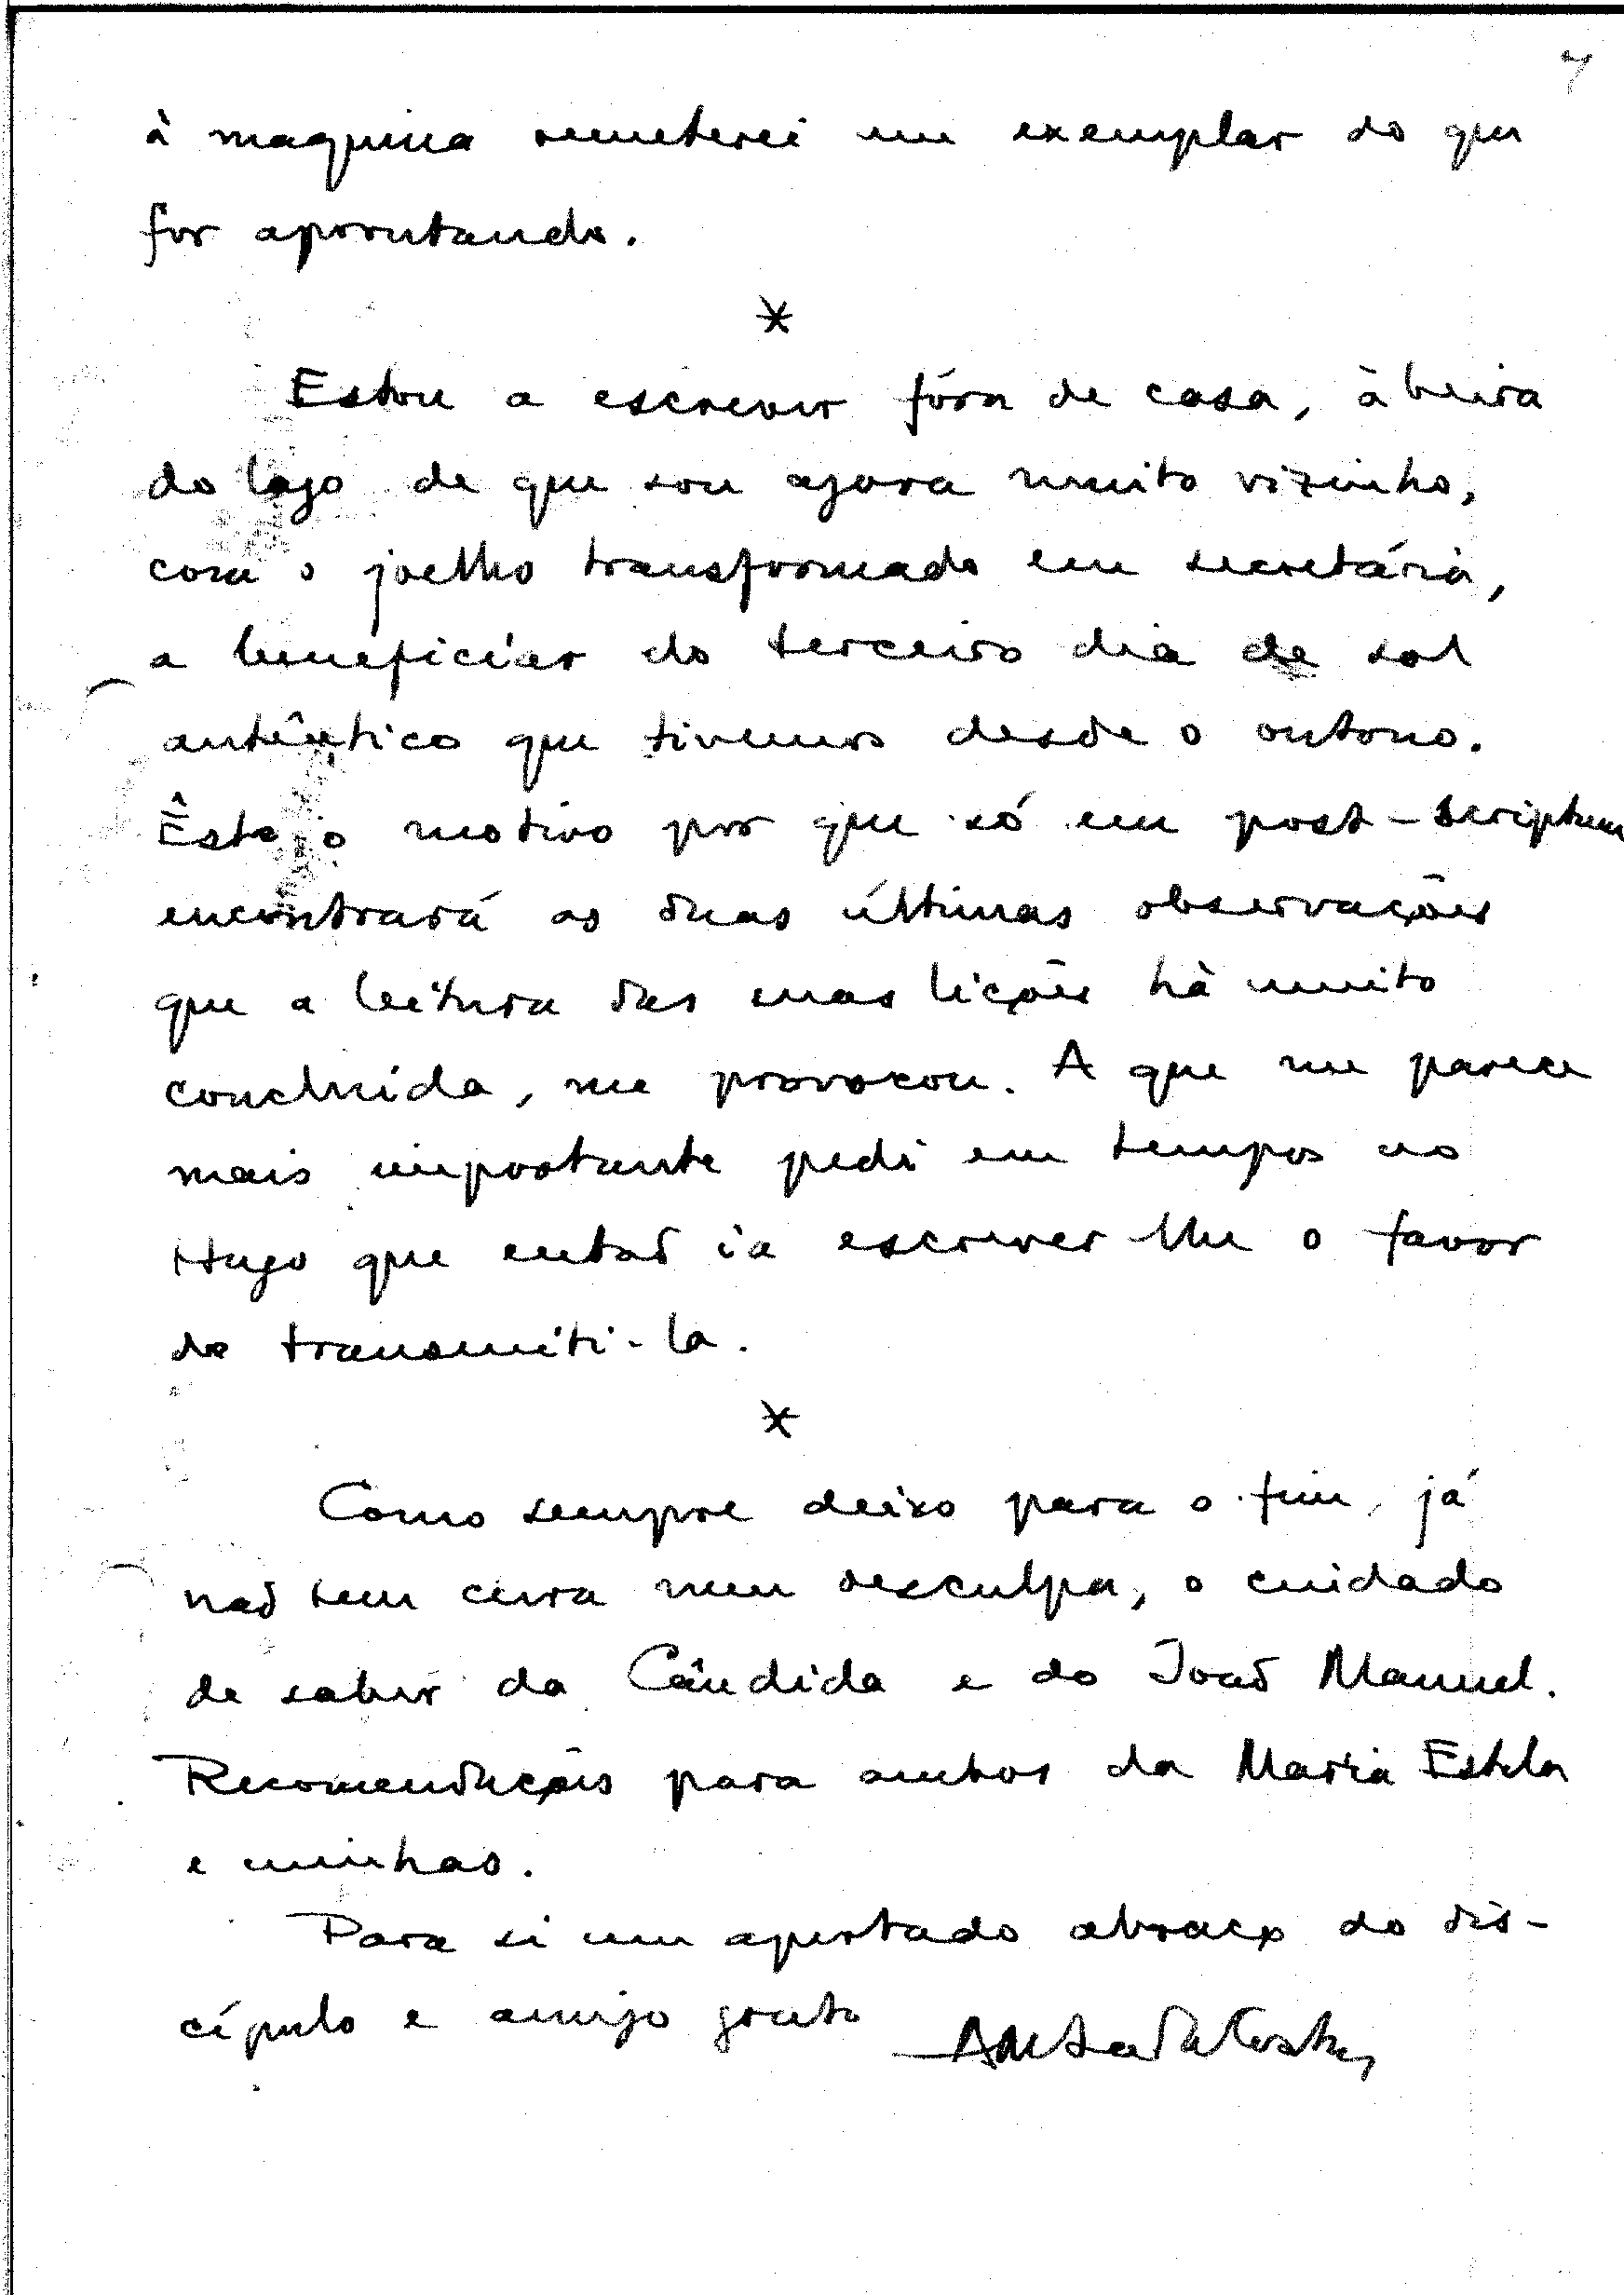 7
à maquina remeterei um exemplar do que
for aprontando.
*
Estou a escrever fóra de casa, à beira
do lago de que sou agora muito vizinho,
com o joelho transformado em secretária,
a beneficiar do terceiro dia de sol
autêntico que tivemos desde o outono.
Êste o motivo por que só em post-scriptum
encontrará as duas últimas observações
que a leitura das suas lições há muito
concluída, me provocou. A que me parece
mais importante pedi em tempos ao
Hugo que entaõ ia escrever-lhe o favor
de transmiti-la.
*
Como sempre deixo para o fim, já
naõ tem cura nem desculpa, o cuidado
de saber da Cândida e do Joaõ Manuel.
Recomendações para ambos da Maria Estela
e minhas.
Para si um apertado abraço do dis-
cípulo e amigo grato